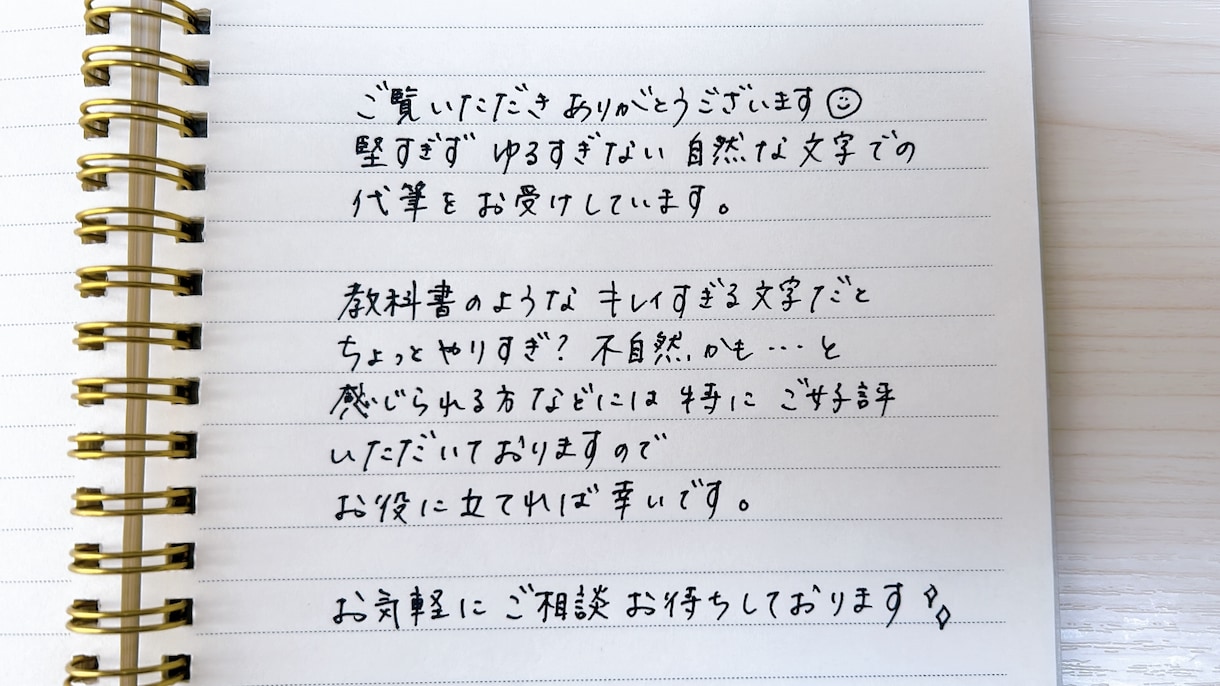 ご覧いただき ありがとうございます☺
堅すぎず ゆるすぎない 自然な文字での
代筆を お受けしています。
教科書のような キレイすぎる文字だと
ちょっとやりすぎ? 不自然かも…と
感じられる方などには 特に ご好評
いただいておりますので
お役に立てれば 幸いです。
お気軽に ご相談 お待ちしております